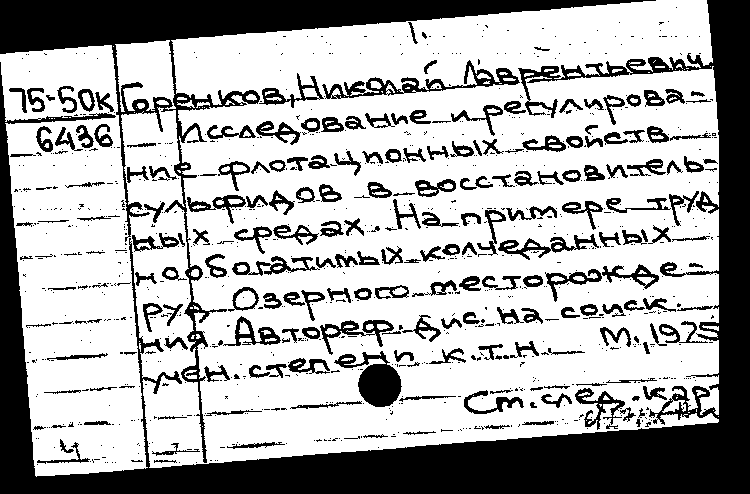 1.
75-50к Горенков, Николай Лаврентьевич.
6436 Исследование и регулирова-
ние флотационных свойств
сульфидов в восстановитель-
ных средах. На примере труд
нообогатимых колчеданных
руд Озерного месторожде-
ния. Автореф. дис. на соиск.
учен. степени к.т.н. М., 1975
См. след. карт
4